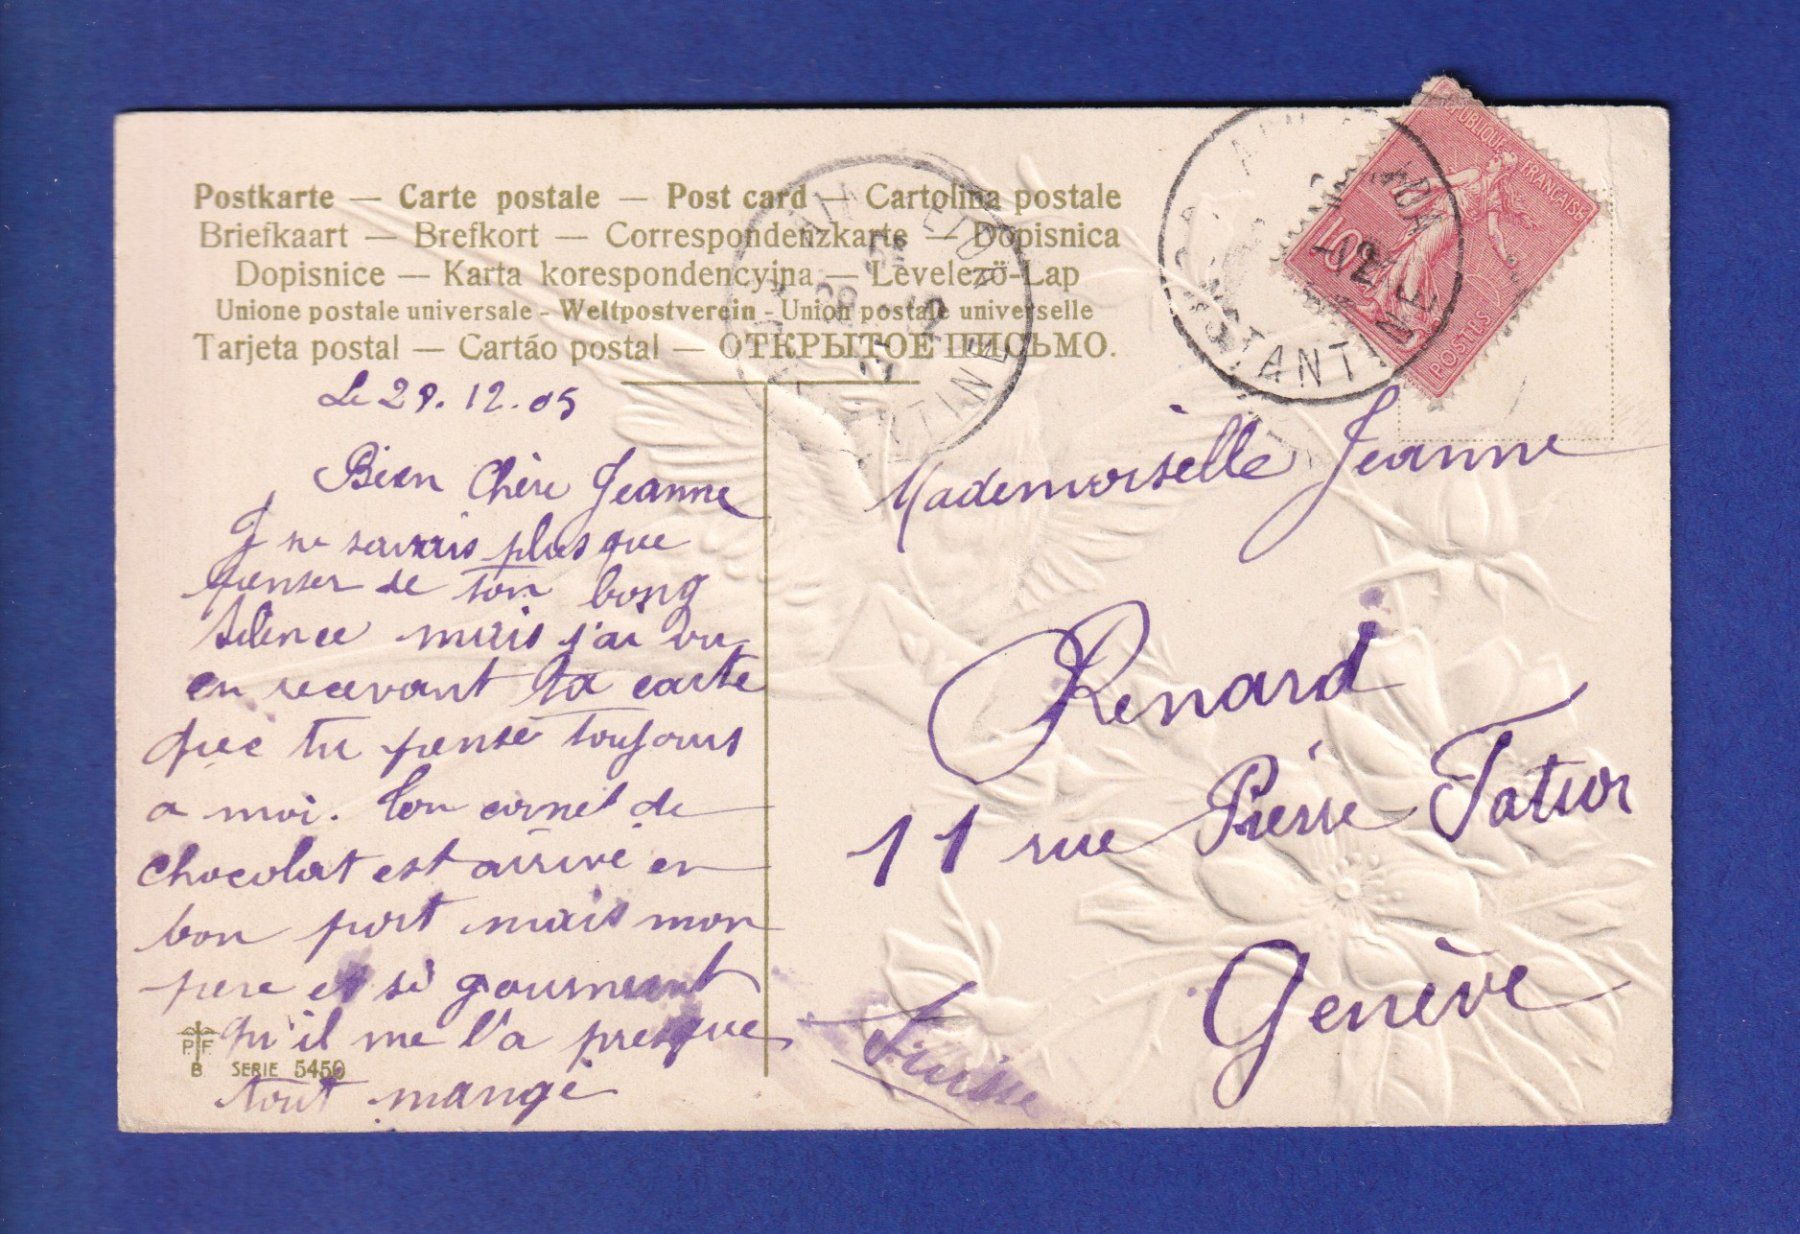 Postkarte — Carte postale — Post card — Cartolina postale
Briefkaart — Brefkort — Correspondenzkarte — Dopisnica
Dopisnice — Karta korespondencyjna — Levelezö-Lap
Unione postale universale - Weltpostverein - Union postale universelle
Tarjeta postal — Cartáo postal — ОТКРЫТОЕ ПИСЬМО.
REPUBLIQUE FRANÇAISE
10
POSTES
CONSTANTINE
Le 29.12.05
Bien Chère Jeanne
Je ne savais plus que
penser de ton long
silence mais j'ai vu
en recevant ta carte
que tu pense toujours
a moi. Ton cornet de
chocolat est arrivé en
bon port mais mon
pere et si gourmant
qu'il me l'a presque
tout mangé
P.F.
B SERIE 5450
Mademoiselle Jeanne
Renard
11 rue Pierre Fatior
Genève
Suisse